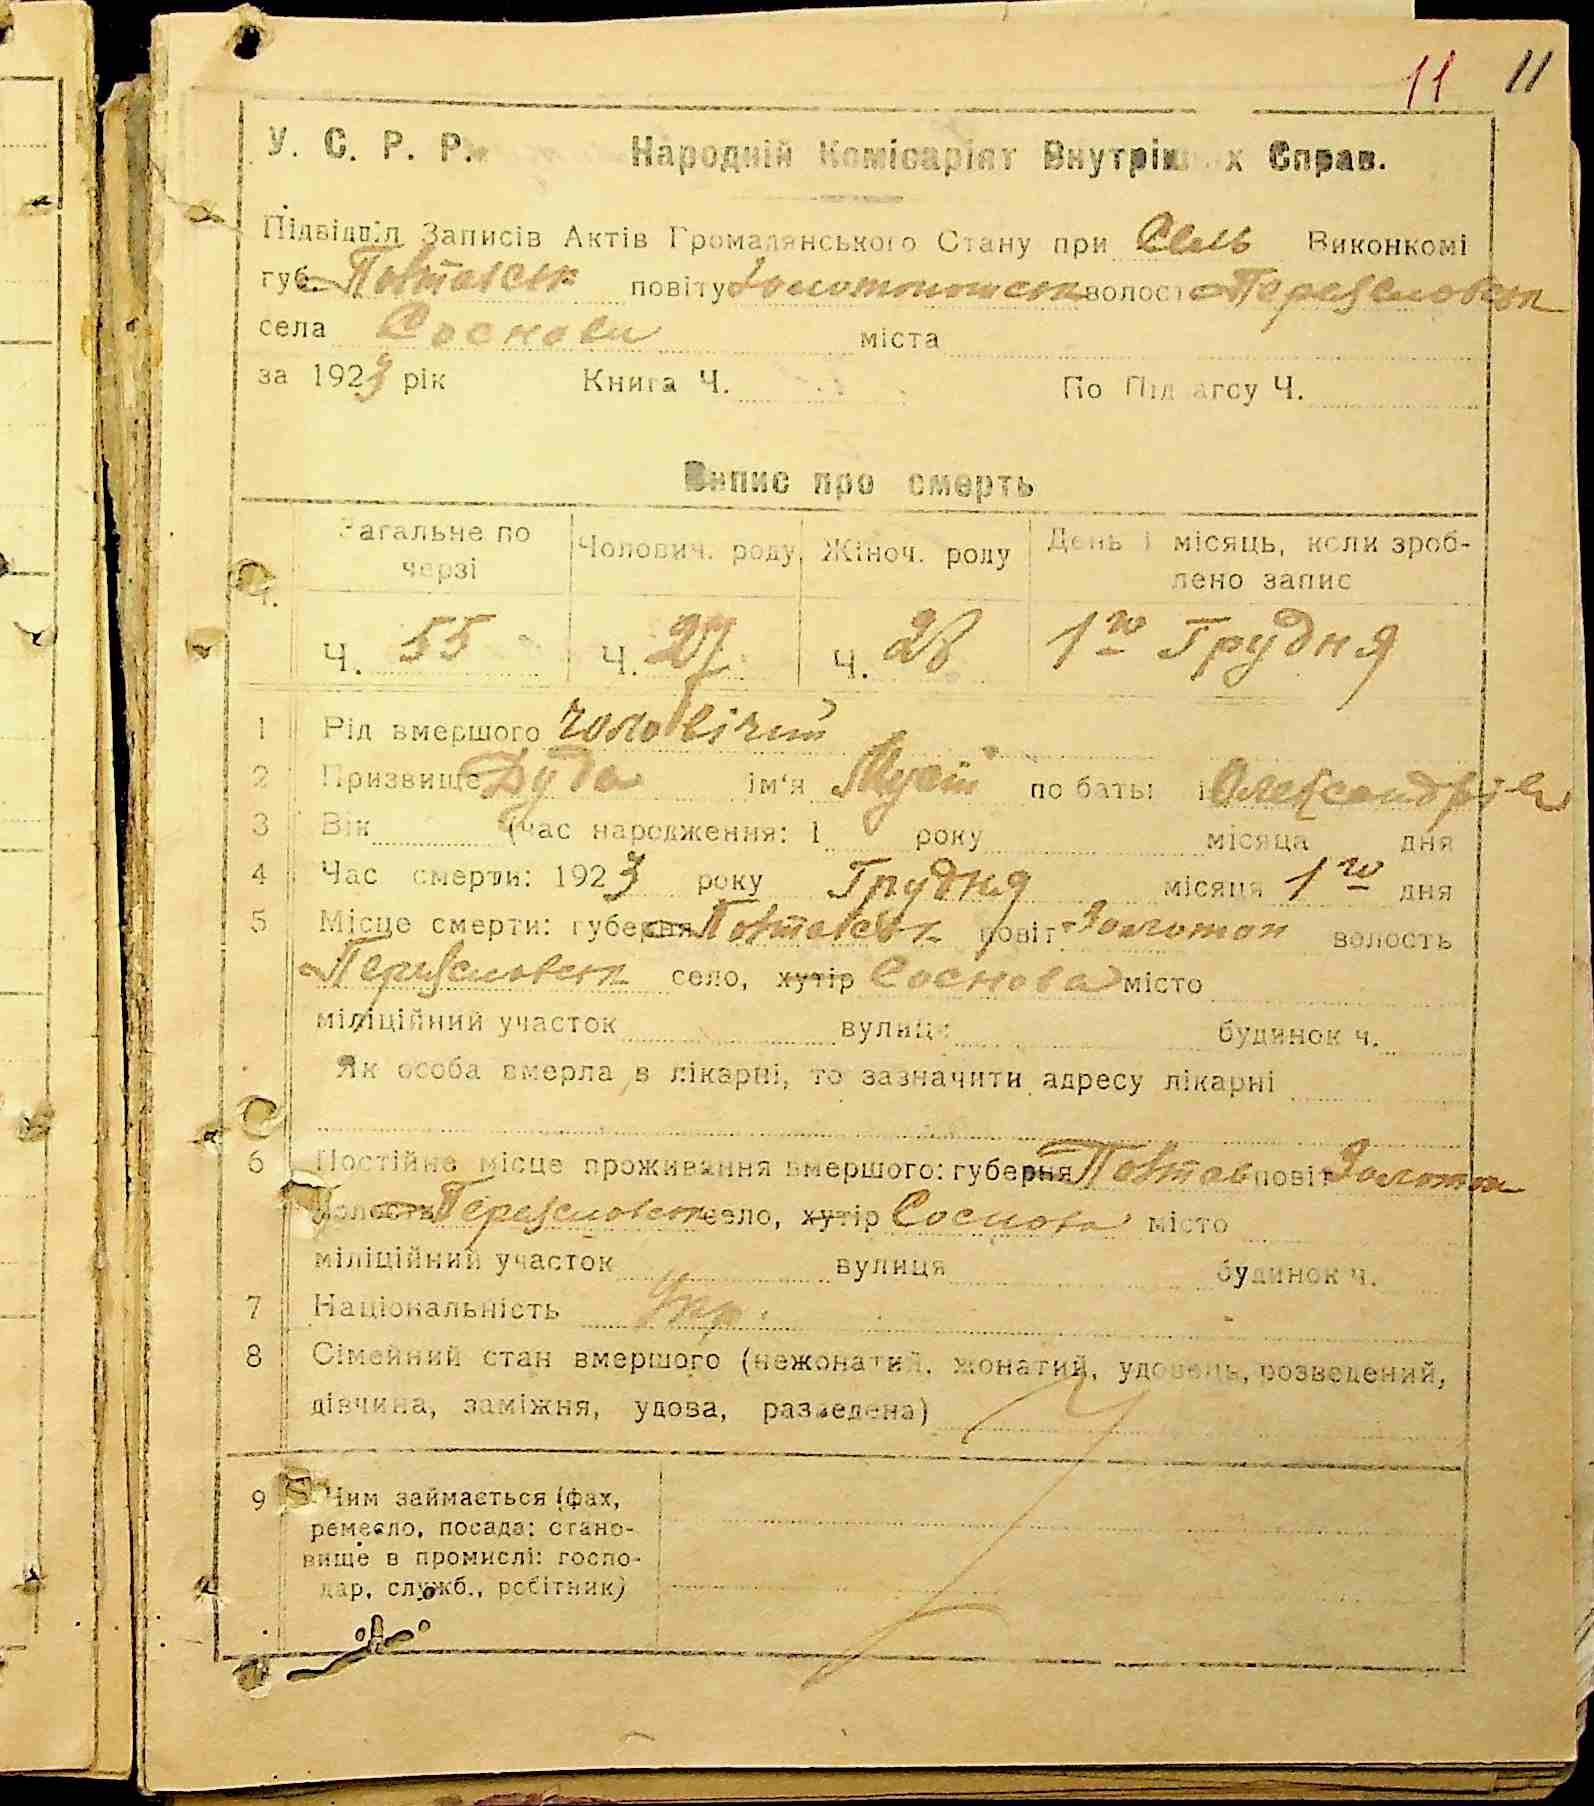 11 11
У. С. Р. Р. Народній Комісаріят Внутрішніх Справ.
Підвідділ Записів Актів Громадянського Стану при Сель Виконкомі
губ. Повтавськ повіту Золотоношськ волості Переяславськ
села Соснови міста
за 1923 рік Книга Ч. По Підзагсу Ч.
Випис про смерть
Загальне по черзі Чолович. роду Жіноч. роду День і місяць, коли зроб-
лено запис
Ч. 55 Ч. 27 Ч. 28 1го Грудня
1 Рід вмершого чоловічий
2 Призвище Дуда ім'я Мусій по батькові Олександрів
3 Вік (час народження: 1 року місяця дня
4 Час смерти: 1923 року Грудня місяця 1го дня
5 Місце смерти: губерня Повтавськ повіт Золотон волость
Переяславськ село, хутір Соснова місто
міліційний участок вулиця будинок ч.
Як особа вмерла в лікарні, то зазначити адресу лікарні
6 Постійне місце проживання вмершого: губерня Повтав повіт Золотон
волость Переяславськ село, хутір Соснова місто
міліційний участок вулиця будинок ч.
7 Національність Укр.
8 Сімейний стан вмершого (нежонатий, жонатий, удовець, розведений,
дівчина, заміжня, удова, разведена)
9 Чим займається (фах,
ремесло, посада: стано-
вище в промислі: госпо-
дар, служб., робітник)